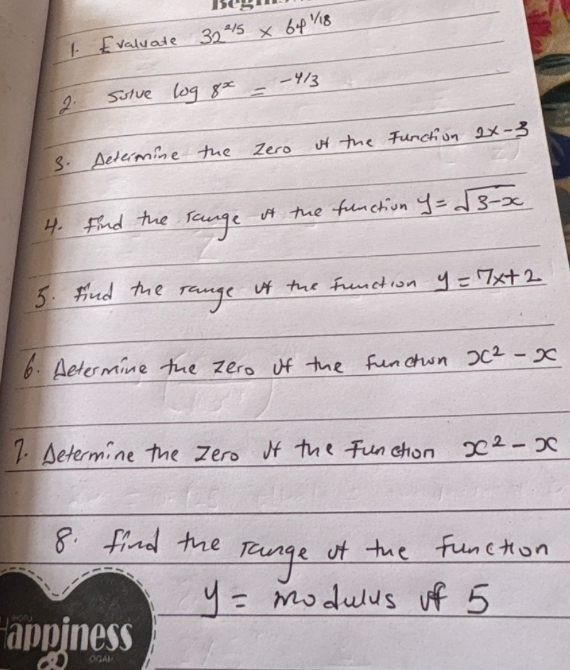 1. Evaluate 32^2/5 × 64^1/18
2. Solve log 8^x = -4/3
3. Determine the Zero of the Function 2x-3
4. Find the range of the function y = √3-x
5. Find the range of the Function y = 7x+2
6. Determine the zero of the function x² - x
7. Determine the Zero of the Function x² - x
8. find the range of the function
y = modulus of 5
appiness
OGAH